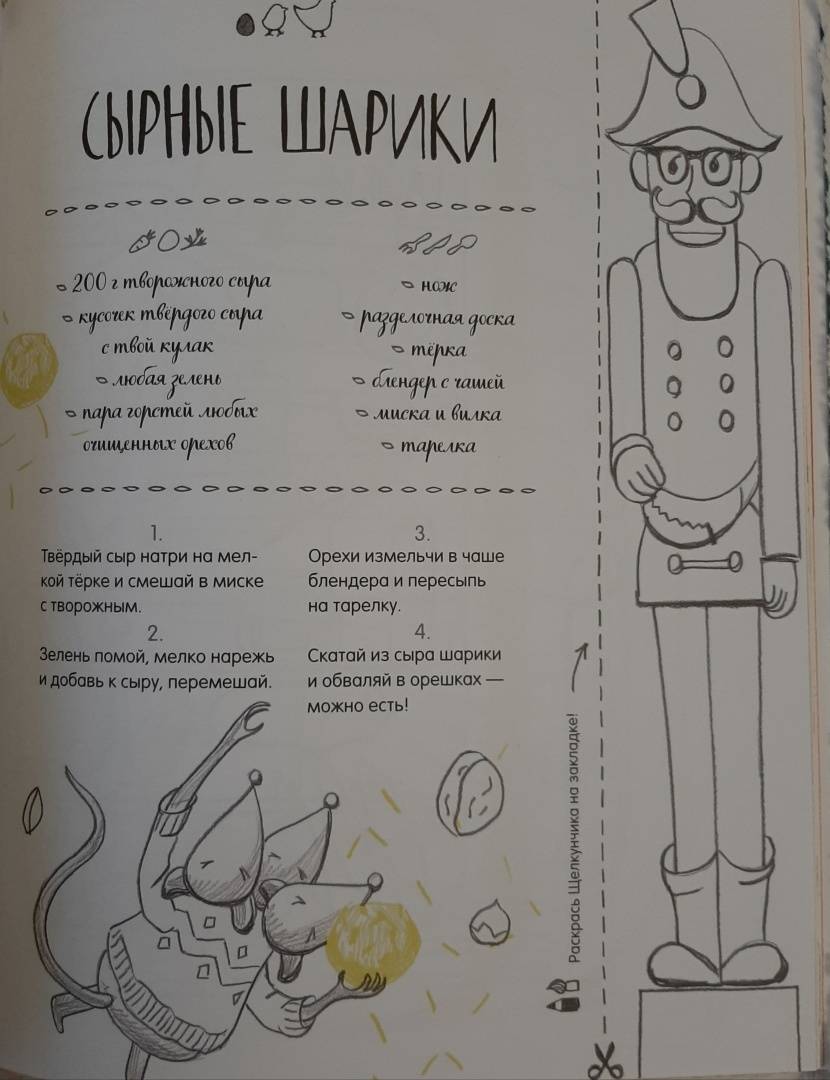 СЫРНЫЕ ШАРИКИ
200 г творожного сыра
кусочек твёрдого сыра
с твой кулак
любая зелень
пара горстей любых
очищенных орехов
нож
разделочная доска
тёрка
блендер с чашей
миска и вилка
тарелка
1.
Твёрдый сыр натри на мел-
кой тёрке и смешай в миске
с творожным.
2.
Зелень помой, мелко нарежь
и добавь к сыру, перемешай.
3.
Орехи измельчи в чаше
блендера и пересыпь
на тарелку.
4.
Скатай из сыра шарики
и обваляй в орешках —
можно есть!
Раскрась Щелкунчика на закладке!